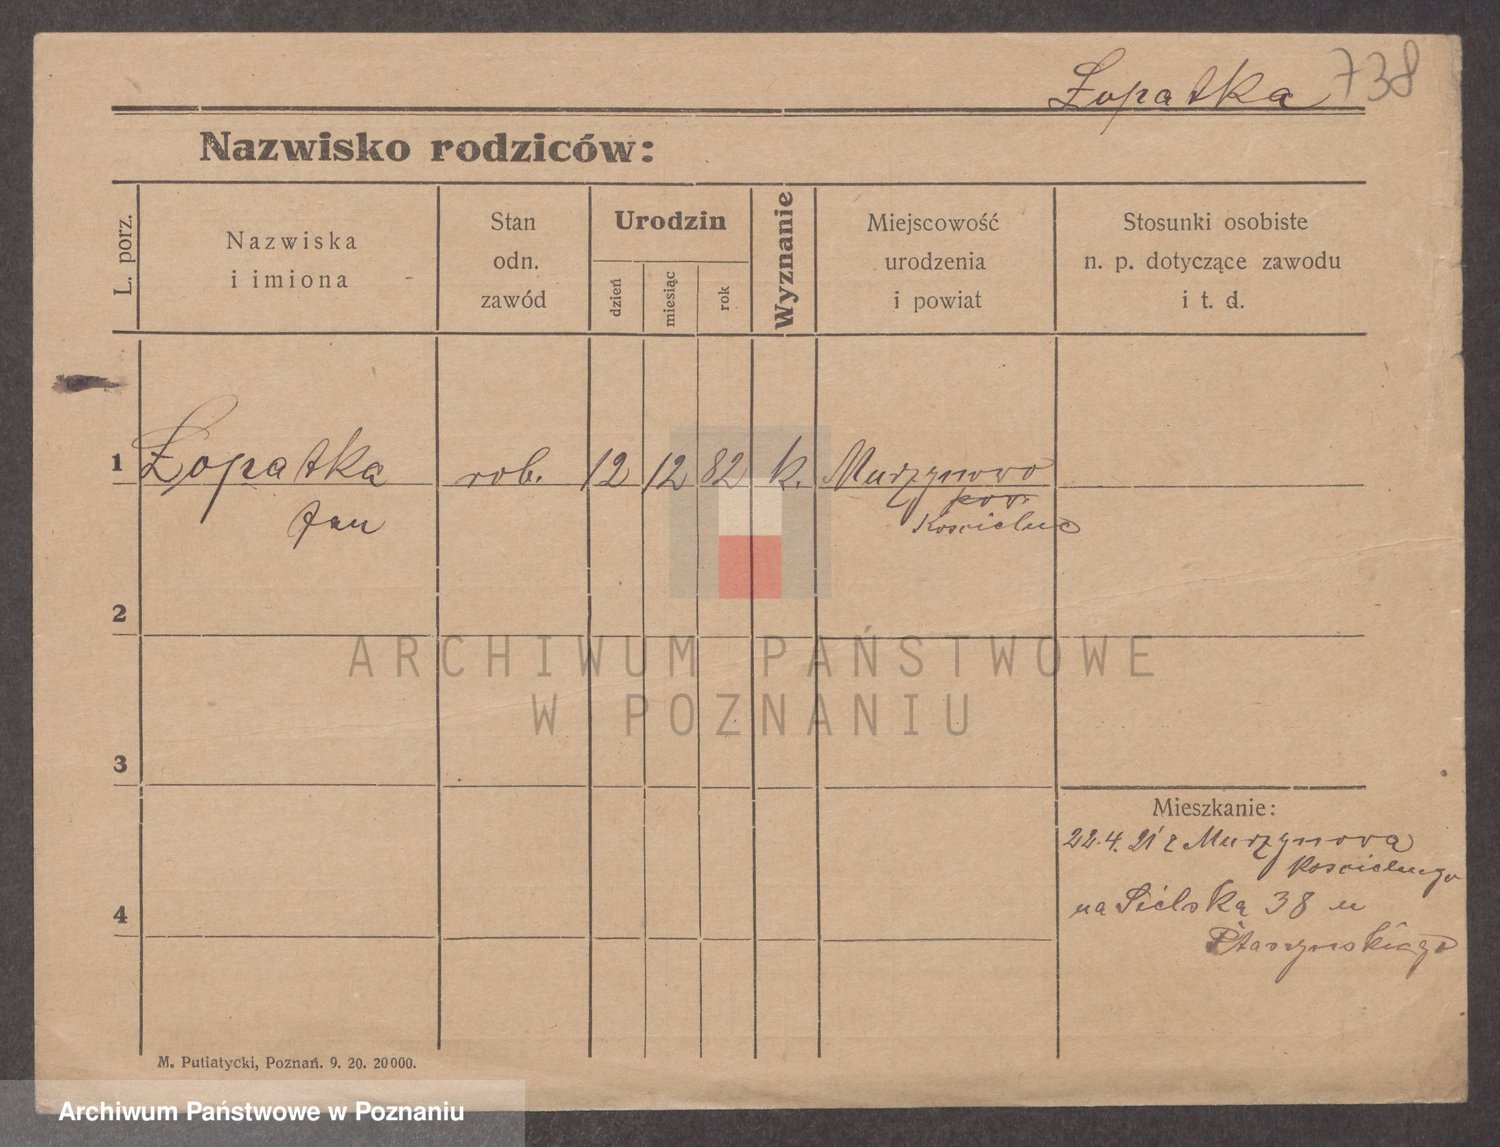 Łopatka 738
Nazwisko rodziców:
L. porz.
Nazwiska
i imiona
Stan
odn.
zawód
Urodzin
dzień
miesiąc
rok
Wyznanie
Miejscowość
urodzenia
i powiat
Stosunki osobiste
n. p. dotyczące zawodu
i t. d.
1 Łopatka rob. 12 12 82 k. Murzynowo
Jan
pow.
Kościelne
2
ARCHIWUM PAŃSTWOWE
W POZNANIU
3
Mieszkanie:
22.4.21 z Murzynova
Kościelnego
na Sielską 38 u
Ptaszynskiego
4
M. Putiatycki, Poznań. 9. 20. 20000.
Archiwum Państwowe w Poznaniu